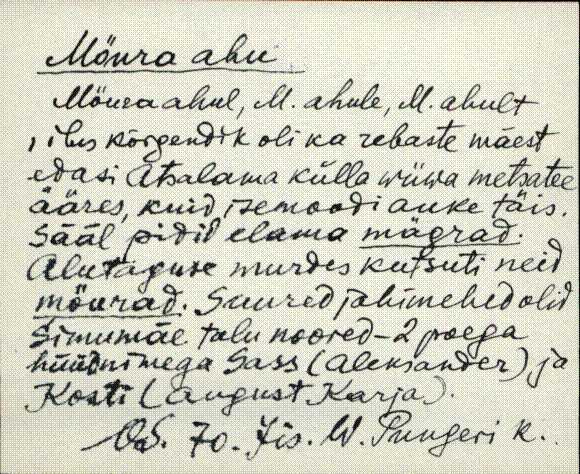 Mõura ahu
Mõura ahul, M. ahule, M. ahult
, ilus kõrgendik oli ka rebaste mäest
edasi Atsalama külla wiiwa metsatee
ääres, kuid isemoodi auke täis.
Sääl pidid elama mägrad.
Alutaguse murdes kutsuti neid
mõurad. Suured jahimehed olid
Simumäe talu noored – 2 poega
hüüdnimega Sass (Aleksander) ja
Kosti (August Karja).
70. Jis. W. Pungeri k.